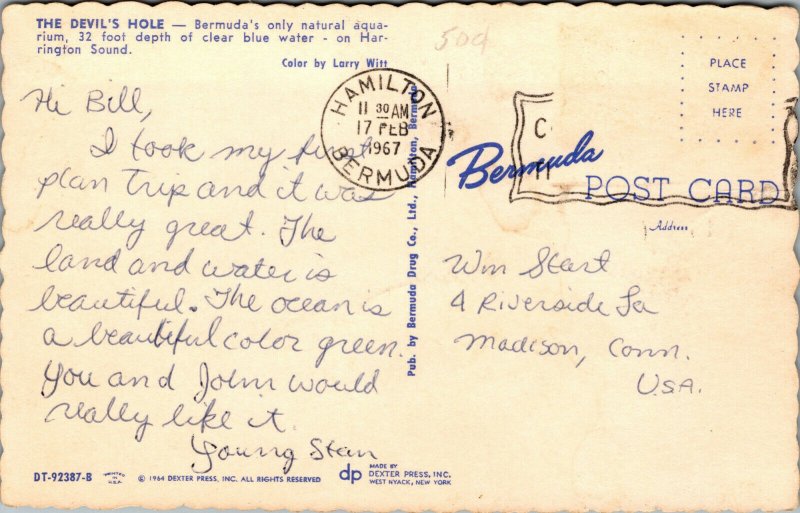 THE DEVIL'S HOLE — Bermuda's only natural aqua-
rium, 32 foot depth of clear blue water - on Har-
rington Sound.
Color by Larry Witt
Hi Bill,
I took my first
plan trip and it was
really great. The
land and water is
beautiful. The ocean is
a beautiful color green.
You and John would
really like it.
Young Stan
DT-92387-B
PRINTED IN U.S.A.
© 1964 DEXTER PRESS, INC. ALL RIGHTS RESERVED
dp
MADE BY
DEXTER PRESS, INC.
WEST NYACK, NEW YORK
Pub. by Bermuda Drug Co., Ltd., Hamilton, Bermuda
50¢
HAMILTON
11 30 AM
17 FEB
1967
BERMUDA
PLACE
STAMP
HERE
C
Bermuda
POST CARD
Address
Wm Start
4 Riverside
Madison, Conn.
U.S.A.